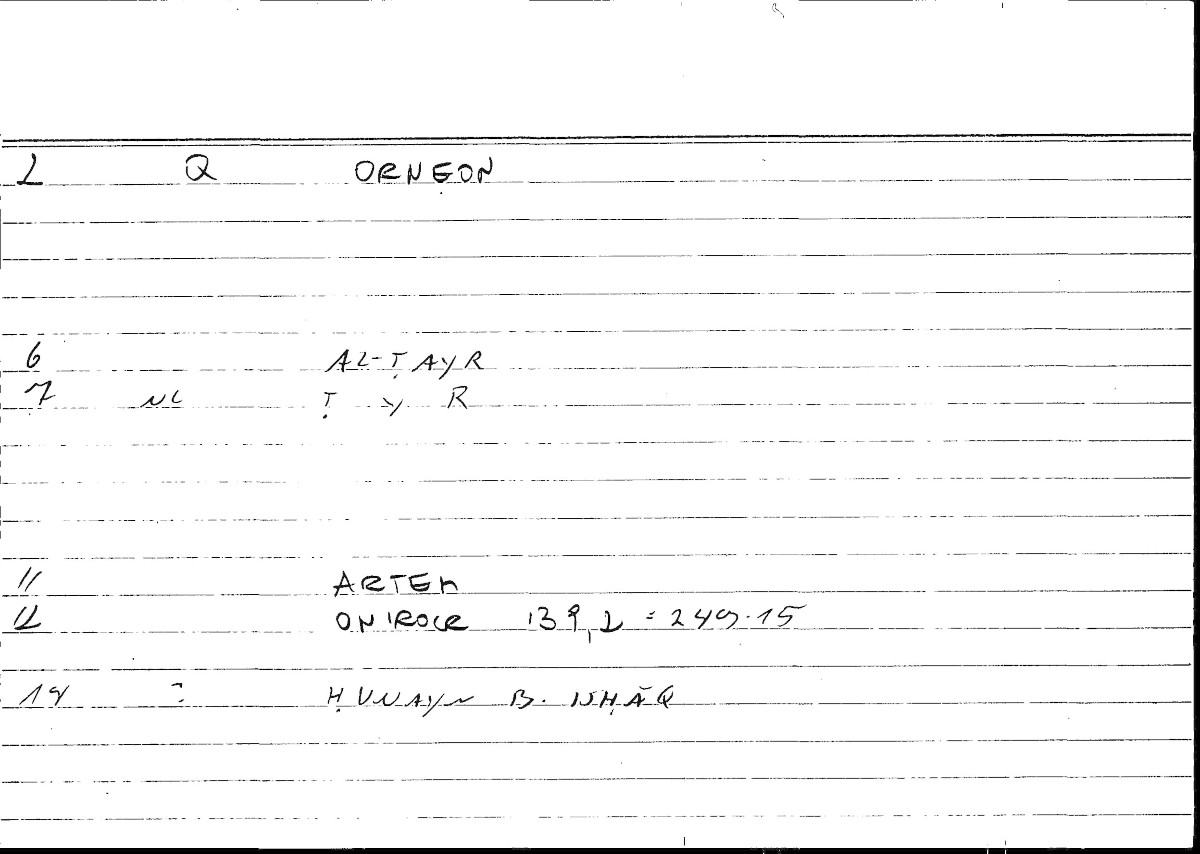 2 Q ORNEON
6 AL-ṬAYR
7 NC Ṭ Y R
11 ARTEM
12 ONIROCR 139,2 = 249.15
14 ? ḤUNAYN B. ISḤĀQ